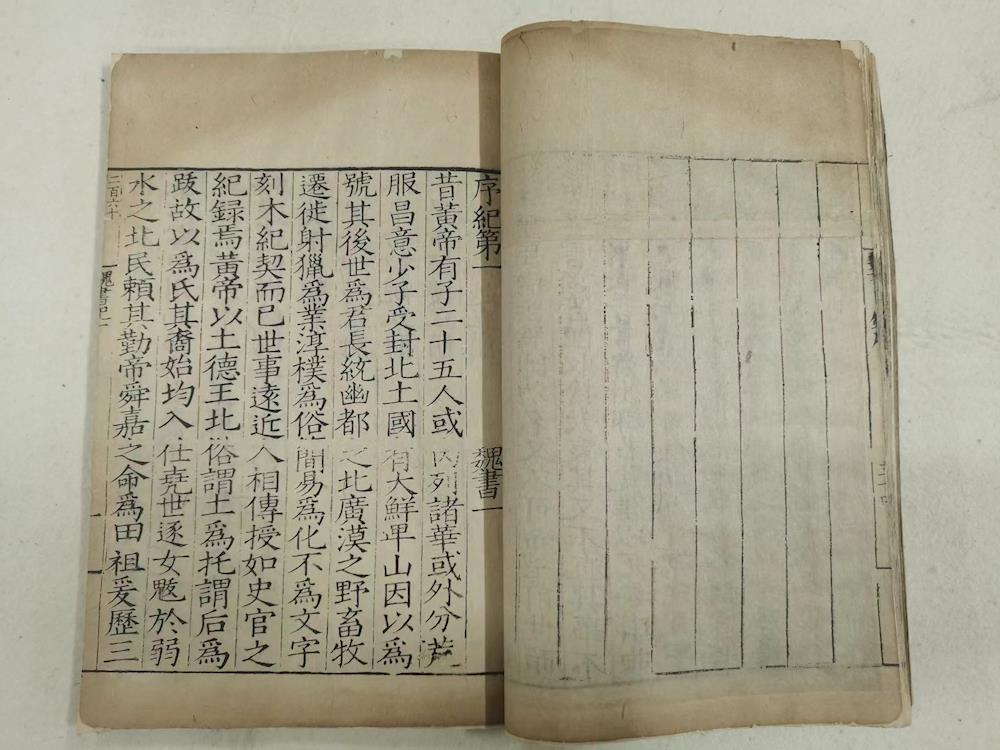 序紀第一 魏書一
昔黃帝有子二十五人或內列諸華或外分荒
服昌意少子受封北土國有大鮮卑山因以為
號其後世為君長統幽都之北廣漠之野畜牧
遷徙射獵為業淳樸為俗簡易為化不為文字
刻木紀契而已世事遠近人相傳授如史官之
紀錄焉黃帝以土德王北俗謂土為托謂后為
跋故以為氏其裔始均入仕堯世逐女魃於弱
水之北民賴其勤帝舜嘉之命為田祖爰歷三
二百六十 魏書紀一 一